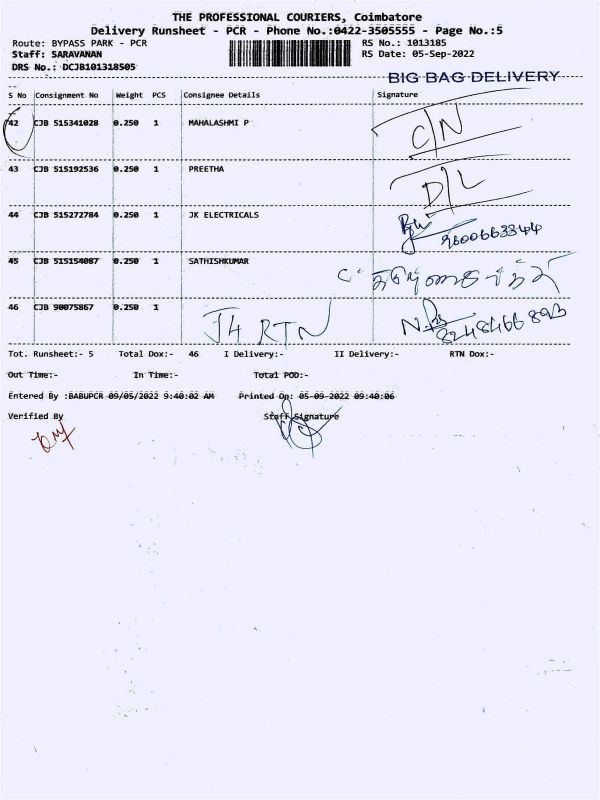 THE PROFESSIONAL COURIERS, Coimbatore
Delivery Runsheet - PCR - Phone No.:0422-3505555 - Page No.:5
Route: BYPASS PARK - PCR RS No.: 1013185
Staff: SARAVANAN RS Date: 05-Sep-2022
DRS No.: DCJB101318505
BIG BAG DELIVERY
S No Consignment No Weight PCS Consignee Details Signature
42 CJB 515341028 0.250 1 MAHALASHMI P C/N
43 CJB 515192536 0.250 1 PREETHA D/L
44 CJB 515272784 0.250 1 JK ELECTRICALS
9600663344
45 CJB 515154087 0.250 1 SATHISHKUMAR
46 CJB 90075867 0.250 1 J4 RTN
8248466893
Tot. Runsheet:- 5 Total Dox:- 46 I Delivery:- II Delivery:- RTN Dox:-
Out Time:- In Time:- Total POD:-
Entered By :BABUPCR 09/05/2022 9:40:02 AM Printed On: 05-09-2022 09:40:06
Verified By Staff Signature